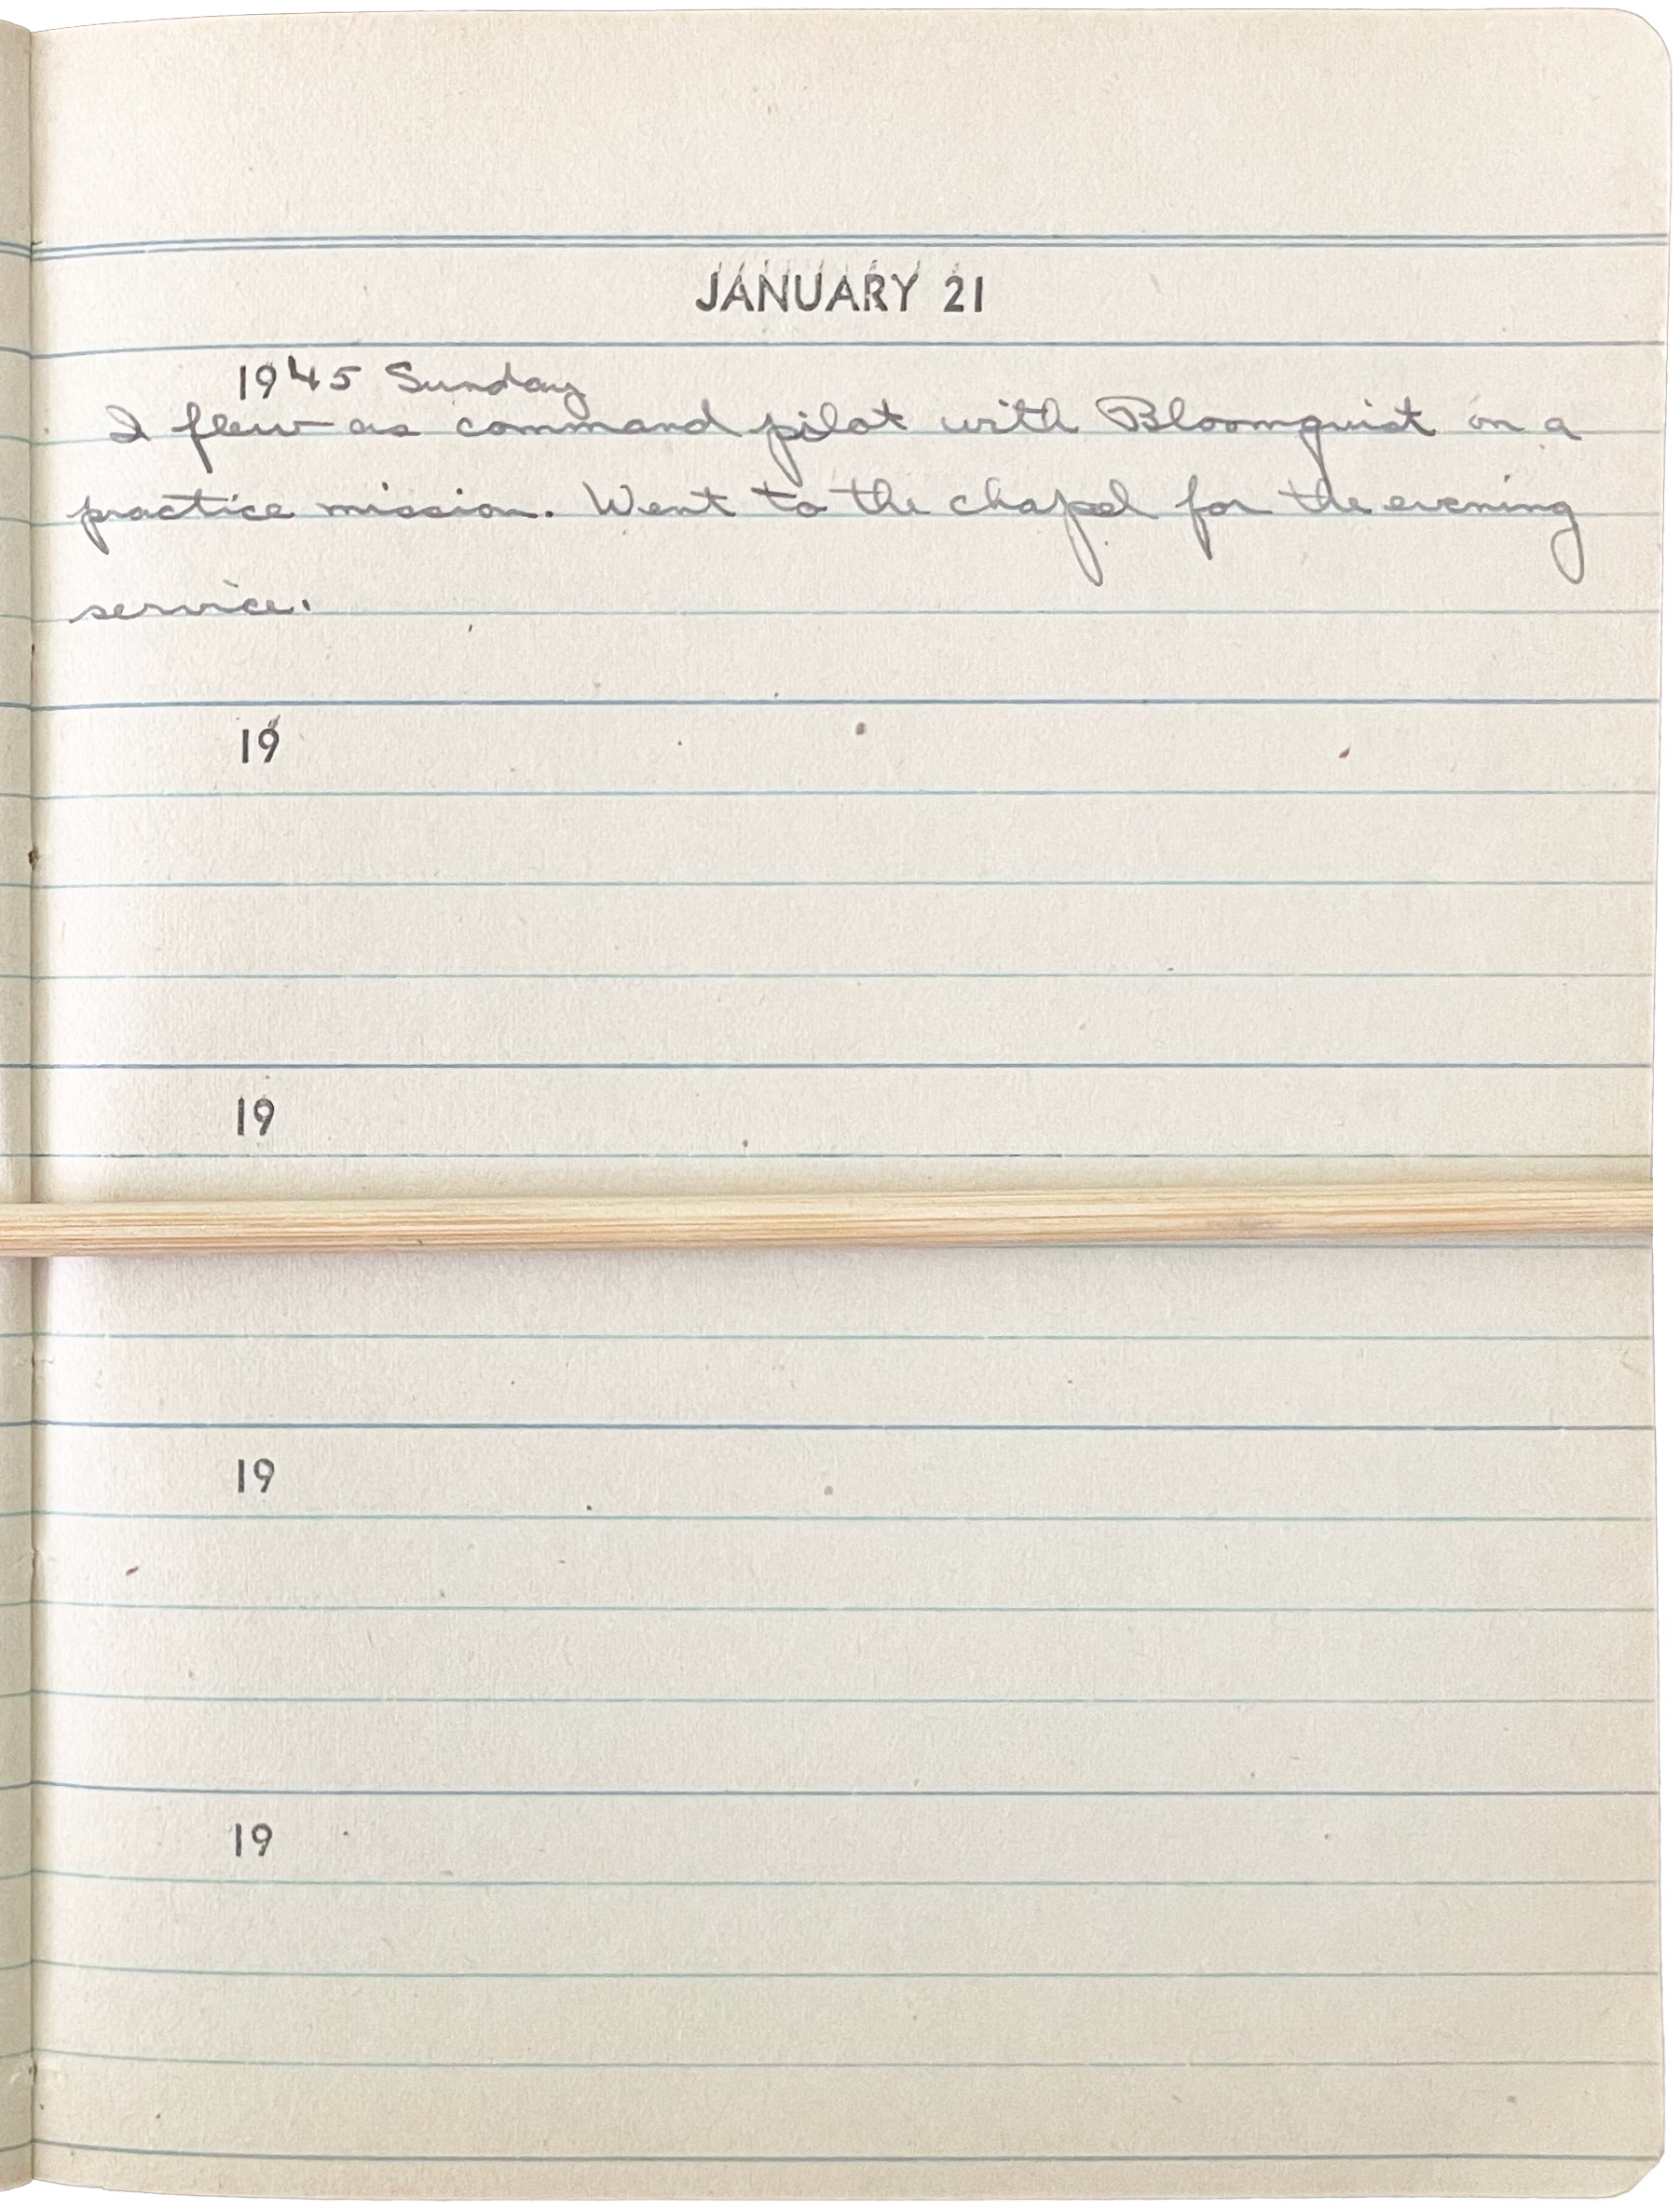 JANUARY 21
1945 Sunday
I flew as command pilot with Bloomquist on a
practice mission. Went to the chapel for the evening
service.
19
19
19
19